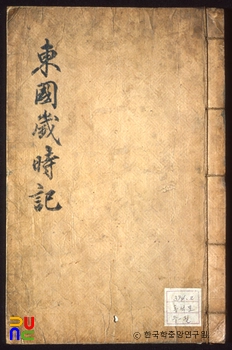 東國歲時記
ⓒ한국학중앙연구원